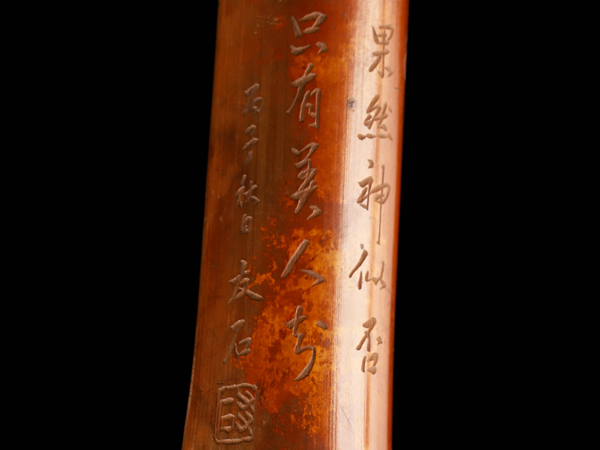 果然神似否
只有美人知
丙子秋日 友石